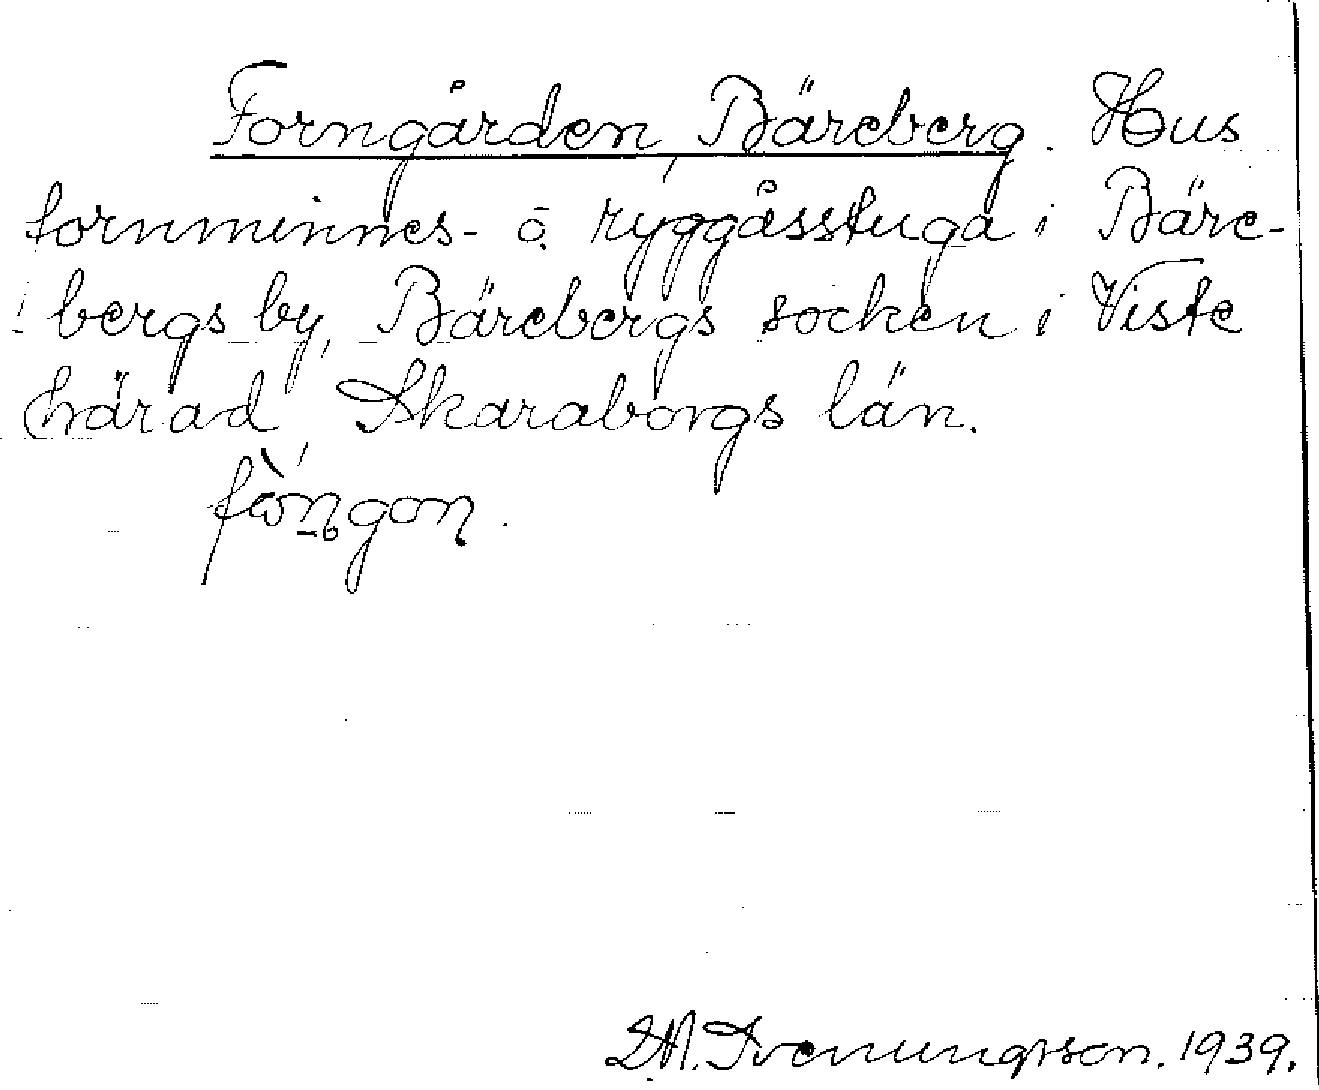 Forngården, Bäreberg. Hus
fornminnes- o. ryggåsstuga i Bäre-
bergs by, Bärebergs socken i Viste
härad, Skaraborgs län.
1939.